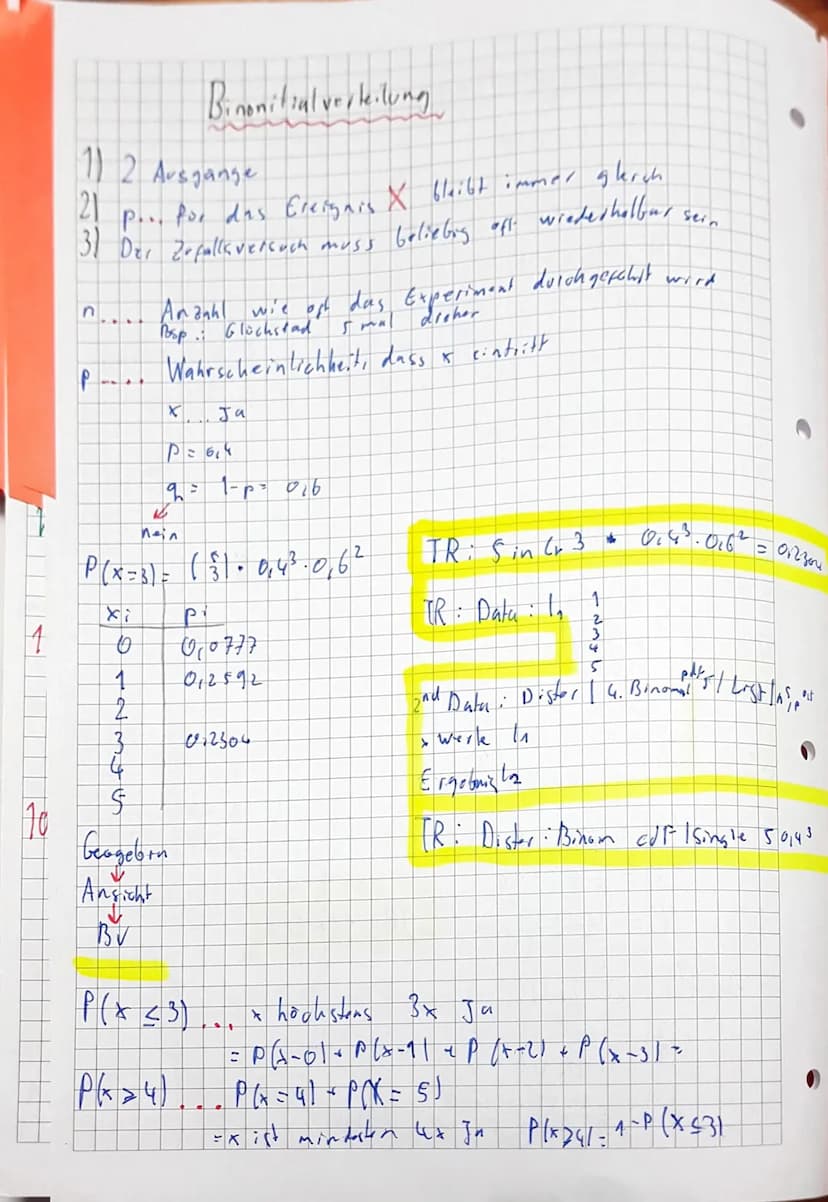 Binomitialverteilung
1) 2 Ausgänge
2) p... für das Ereignis X bleibt immer gleich
3) Der Zufallsversuch muss beliebig oft wiederholbar sein
n.... Anzahl wie oft das Experiment durchgeführt wird
Bsp.: Glücksrad 5 mal drehen
p.... Wahrscheinlichkeit, dass x eintritt
x... Ja
p = 0,4
q = 1-p = 0,6
nein
P(x=3) = (5 3) · 0,4³ · 0,6²
xi pi
0 0,0777
1 0,2592
2
3 0,2304
4
5
TR: 5 in Cr 3 * 0,4³ · 0,6² = 0,2304
TR: Data: l1 1
2
3
4
5
2nd Data: Dister | 4. Binomial pdf / List / n5, p
x werte l1
Ergebnis l2
TR: Dister: Binom cdf / Single 5 0,4 3
Geogebra
Ansicht
BV
P(x ≤ 3) ... x höchstens 3x Ja
= P(x-0) + P(x-1) + P(x-2) + P(x-3) =
P(x ≥ 4) ... P(x = 4) + P(X = 5)
= x ist mindesten 4x Ja P(x≥4) = 1-P(x≤3)
1
10